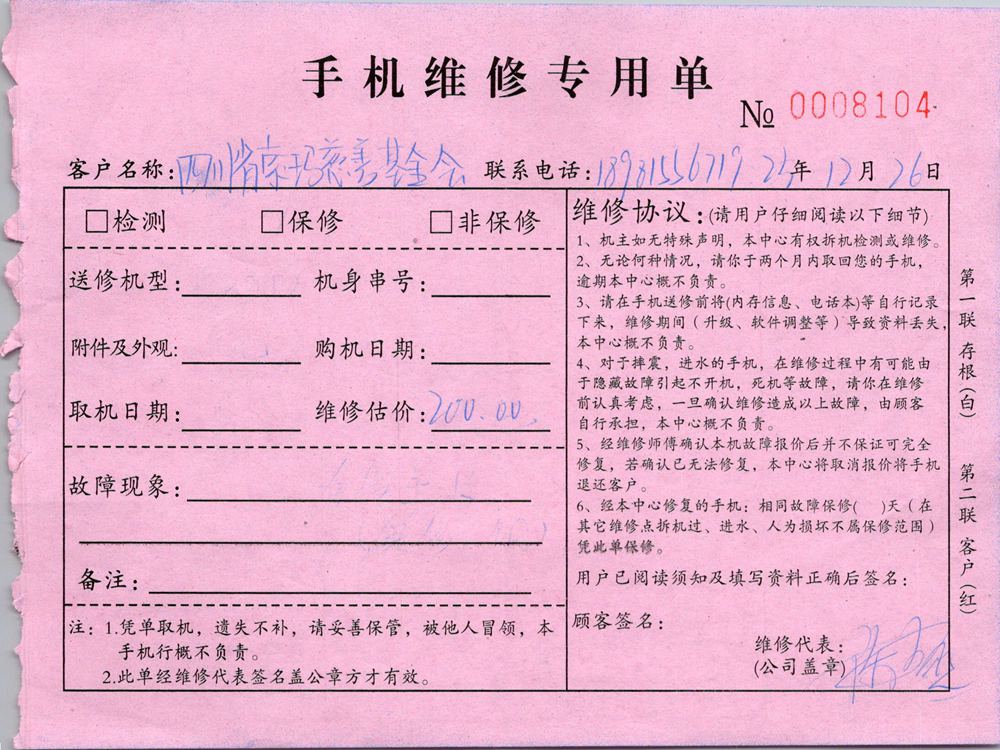 手机维修专用单
№ 0008104
客户名称: 四川省索玛慈善基金会 联系电话: 18981556719 23年12月26日
□检测 □保修 □非保修
送修机型: 机身串号:
附件及外观: 购机日期:
取机日期: 维修估价: 200.00.
故障现象:
备注:
注: 1.凭单取机，遗失不补，请妥善保管，被他人冒领，本
手机行概不负责。
2.此单经维修代表签名盖公章方才有效。
维修协议: (请用户仔细阅读以下细节)
1、机主如无特殊声明，本中心有权拆机检测或维修。
2、无论何种情况，请你于两个月内取回您的手机，
逾期本中心概不负责。
3、请在手机送修前将(内存信息、电话本)等自行记录
下来，维修期间（升级、软件调整等）导致资料丢失，
本中心概不负责。
4、对于摔震，进水的手机，在维修过程中有可能由
于隐藏故障引起不开机，死机等故障，请你在维修
前认真考虑，一旦确认维修造成以上故障，由顾客
自行承担，本中心概不负责。
5、经维修师傅确认本机故障报价后并不保证可完全
修复，若确认已无法修复，本中心将取消报价将手机
退还客户。
6、经本中心修复的手机：相同故障保修( )天（在
其它维修点拆机过、进水、人为损坏不属保修范围）
凭此单保修。
用户已阅读须知及填写资料正确后签名：
顾客签名：
维修代表：
(公司盖章)
第一联 存根(白)
第二联 客户(红)